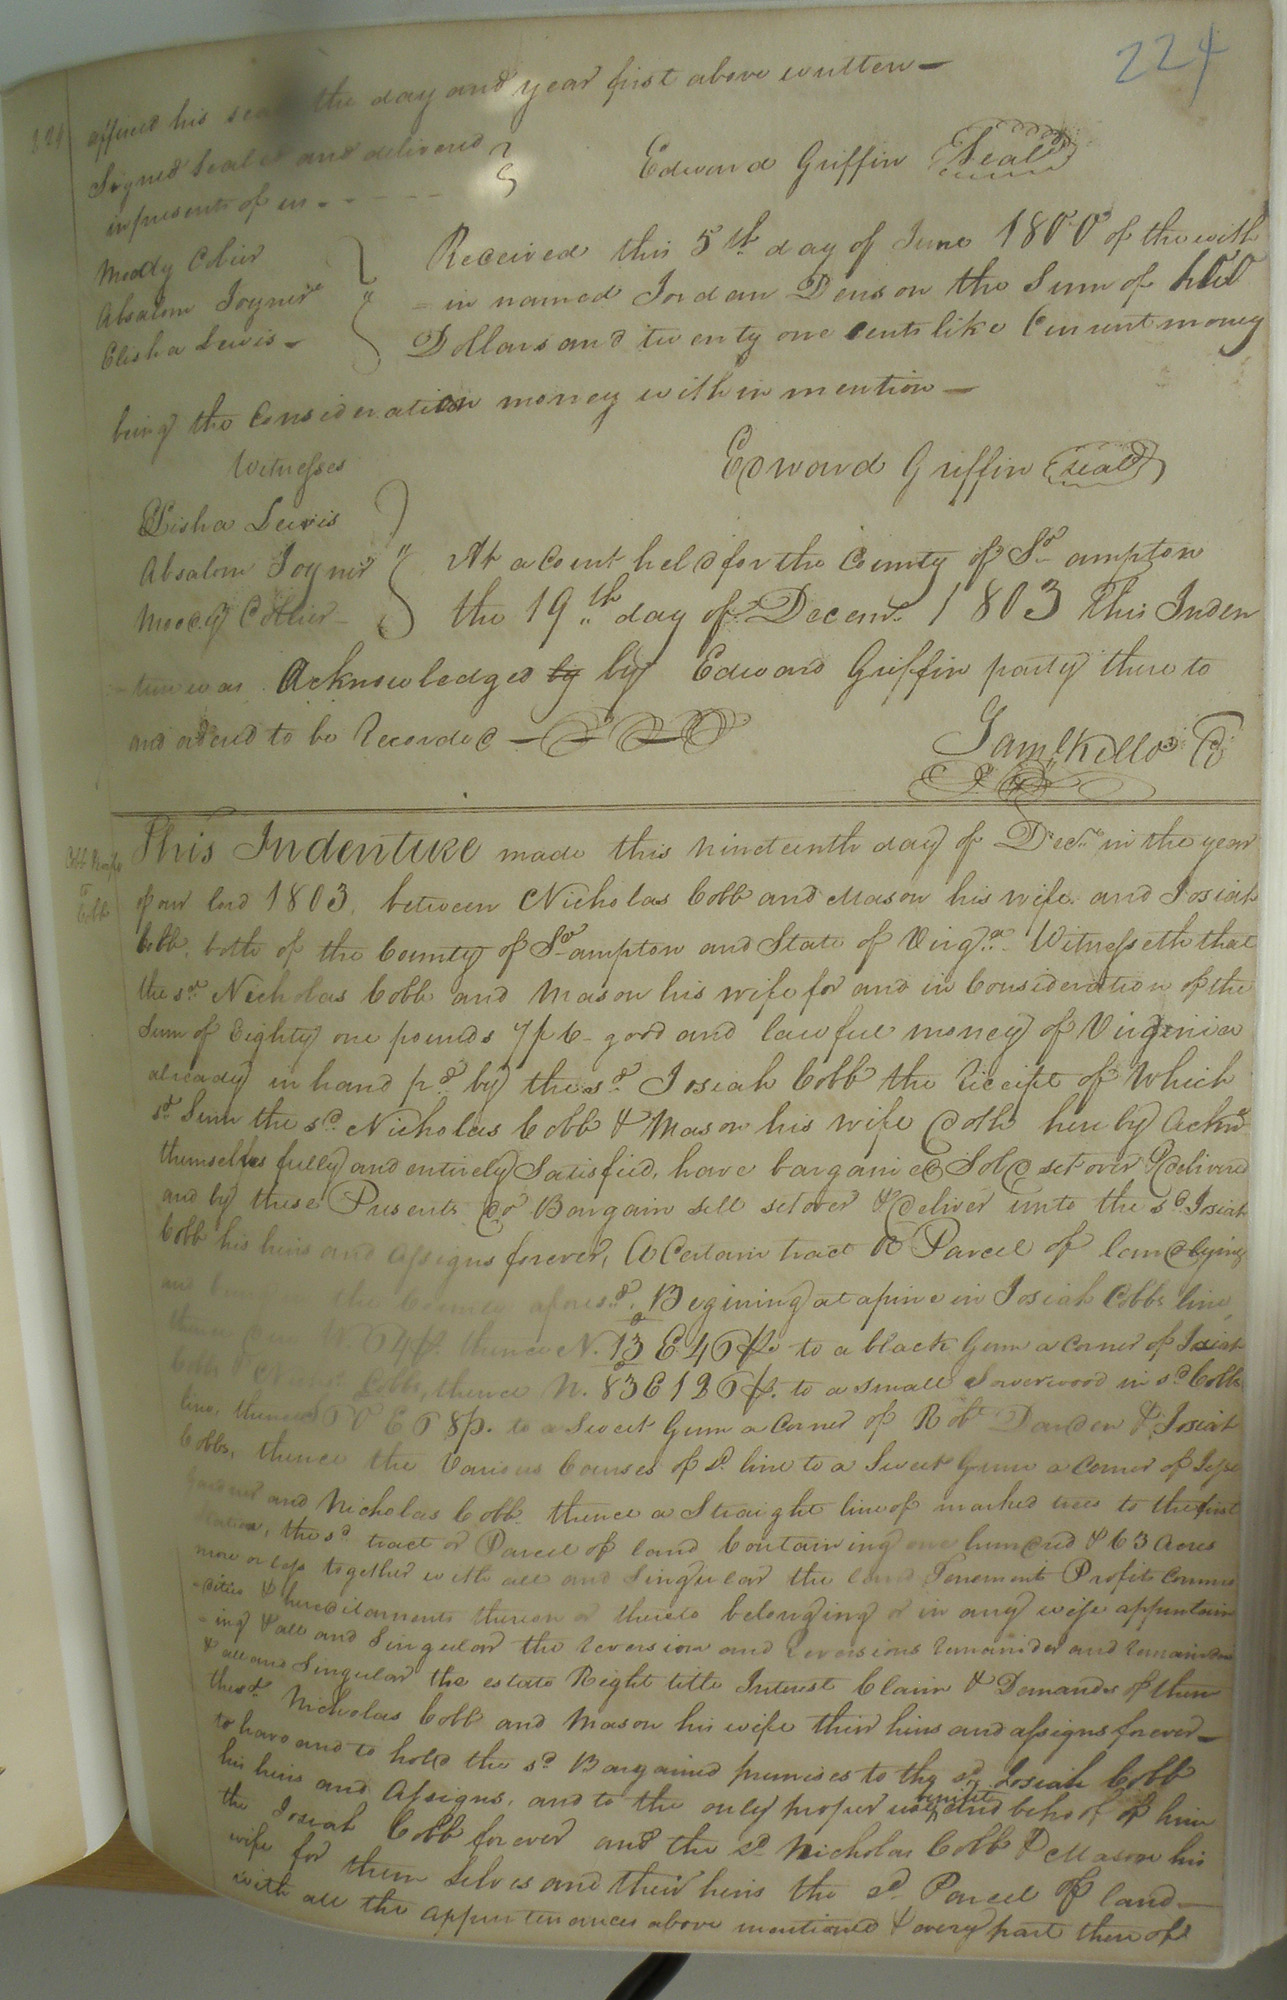 224
affixed his seal the day and year first above written
Signed Sealed and delivered
in presents of us
Edward Griffin Seal
Moody Collier
Absalom Joyner
Elisha Lewis
Received this 5th day of June 1800 of the with
in named Jordan Denson the Sum of
Dollars and twenty one cents like Current money
being the Consideration money within mention
Witnesses
Edward Griffin seal
Elisha Lewis
Absalom Joyner
Moody Collier
At a Court held for the County of So ampton
the 19th day of Decemr 1803 This Inden
ture was Acknowledged by by Edward Griffin party there to
and ordered to be Recorded
Saml Kello
Cobb
to
Cobb
This Indenture made this nineteenth day of Decr in the year
of our lord 1803. between Nicholas Cobb and Mason his wife and Josiah
Cobb, both of the County of So ampton and State of Virga Witnesseth that
the sd Nicholas Cobb and Mason his wife for and in Consideration of the
Sum of Eighty one pounds 7/6 good and lawful money of Virginia
already in hand pd by the sd Josiah Cobb the Receipt of Which
sd Sum the sd Nicholas Cobb & Mason his wife doth here by Ackn
themselves fully and entirely Satisfied, have bargained Sold set over & delivered
and by these Presents do Bargain sell set over & deliver unto the sd Josiah
Cobb his heirs and assigns forever, A Certain tract or Parcel of land lying
and the County afores.d Begining at a pine in Josiah Cobbs line
thence N. 13 E 46 p. to a black Gum a corner of Josiah
Cobb & Cobbs, thence N. 83 E 126 p. to a small Sowerwood in sd Cobbs
line, thence E 68 p. to a Sweet Gum a Corner of Rob Darden & Josiah
Cobbs, thence the Various Courses of sd line to a Sweet Gum a Corner of Jesse
Gardner and Nicholas Cobb thence a Straight line of marked trees to the first
Station, the sd tract or Parcel of land Containing one hundred & 63 Acres
more or less together with all and Singular the land Tenements Profits Commo
dities & hereditaments thereon or thereto belonging or in any wise appertain
ing & all and Singular the reversion and reversions remainder and remainders
& all and Singular the estate Right title Interest Claim & Demands of them
the sd Nicholas Cobb and Mason his wife their heirs and assigns forever
to have and to hold the sd Bargained premises to the sd Josiah Cobb
his heirs and Assigns, and to the only proper use benifit and behoof of him
the Josiah Cobb forever and the sd Nicholas Cobb & Mason his
wife for them selves and their heirs the sd Parcel of land
with all the appurtenances above mentioned & every part there of